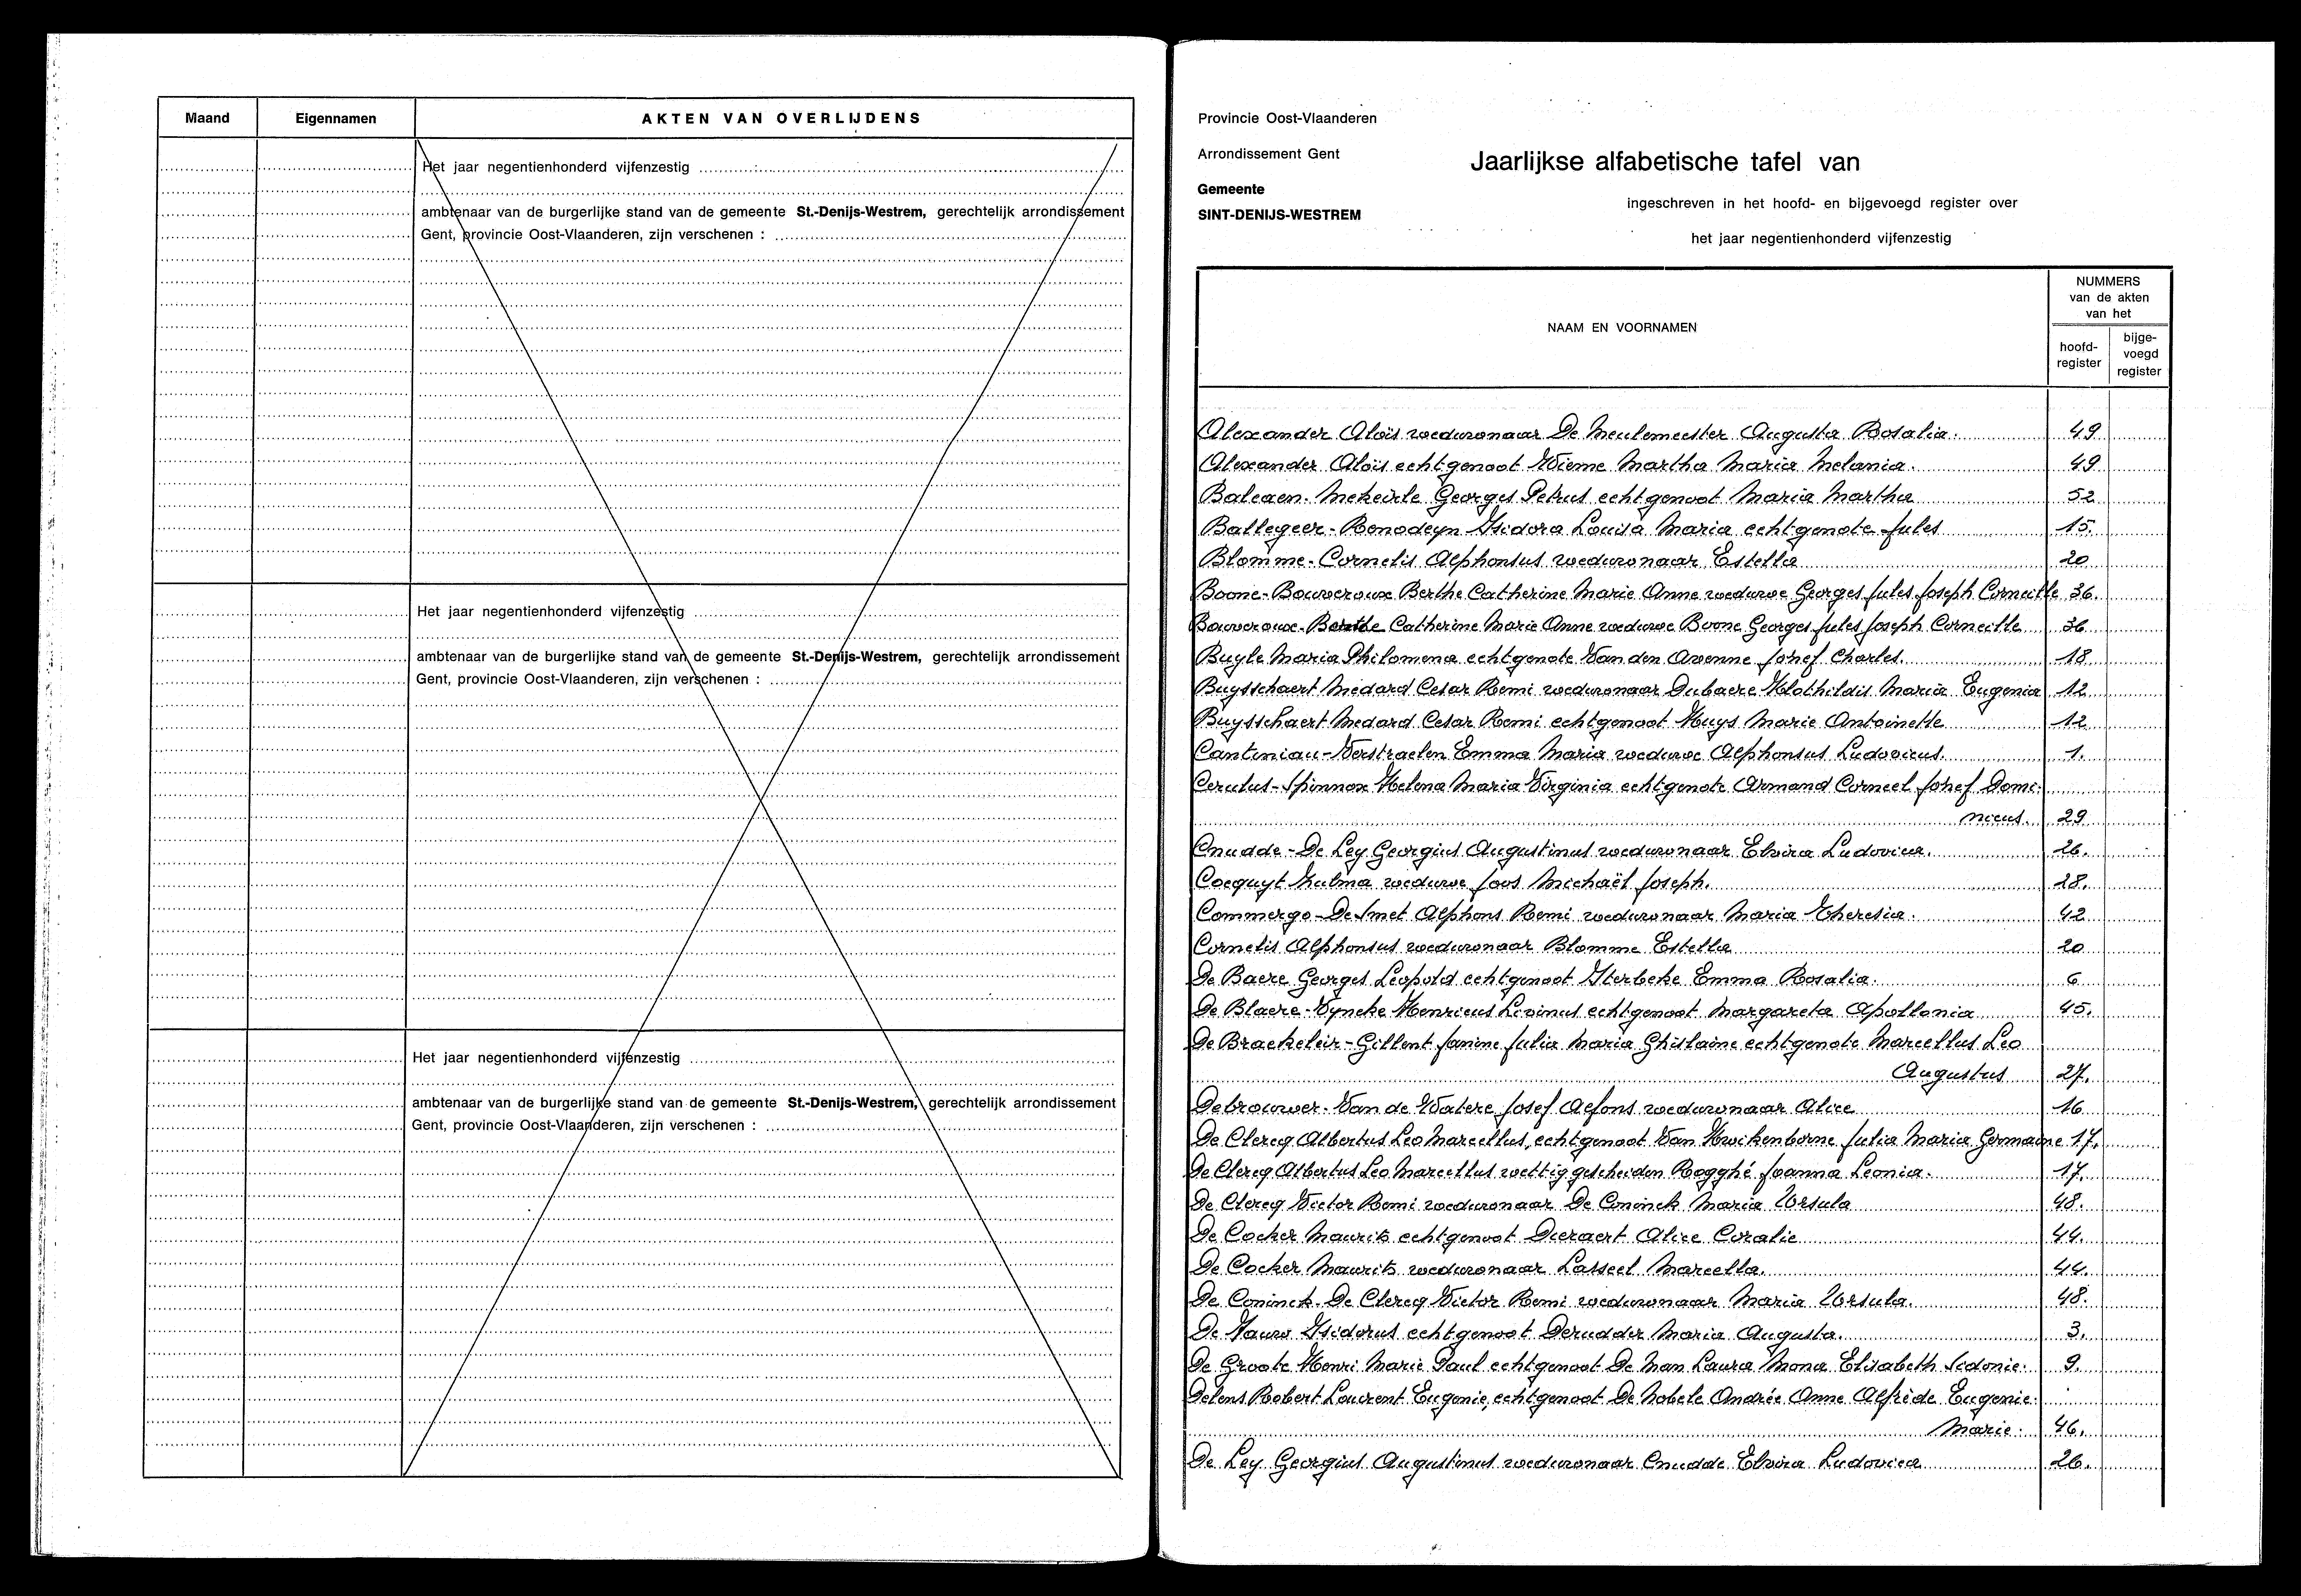 Maand
Eigennamen
AKTEN VAN OVERLIJDENS
Het jaar negentienhonderd vijfenzestig
ambtenaar van de burgerlijke stand van de gemeente St.-Denijs-Westrem, gerechtelijk arrondissement
Gent, provincie Oost-Vlaanderen, zijn verschenen :
Het jaar negentienhonderd vijfenzestig
ambtenaar van de burgerlijke stand van de gemeente St.-Denijs-Westrem, gerechtelijk arrondissement
Gent, provincie Oost-Vlaanderen, zijn verschenen :
Het jaar negentienhonderd vijfenzestig
ambtenaar van de burgerlijke stand van de gemeente St.-Denijs-Westrem, gerechtelijk arrondissement
Gent, provincie Oost-Vlaanderen, zijn verschenen :
Provincie Oost-Vlaanderen
Arrondissement Gent
Gemeente
SINT-DENIJS-WESTREM
Jaarlijkse alfabetische tafel van
ingeschreven in het hoofd- en bijgevoegd register over
het jaar negentienhonderd vijfenzestig
NAAM EN VOORNAMEN
NUMMERS
van de akten
van het
hoofd-
register
bijge-
voegd
register
Alexander Aloïs weduwnaar De Meulemeester Augusta Rosalia. 49
Alexander Aloïs echtgenoot Wieme Martha Maria Melania. 49
Balcaen-Mekeirle Georges Petrus echtgenoot Maria Martha 52
Ballegeer-Renodeyn Isidora Louisa Maria echtgenote Jules 15.
Blomme-Cornelis Alphonsus weduwnaar Estella 20
Boone-Bouveroux Berthe Catherine Marie Anne weduwe Georges Jules Joseph Corneille 36.
Bouveroux-Berthe Catherine Marie Anne weduwe Boone Georges Jules Joseph Corneille 36
Buyle Maria Philomena echtgenote Van den Avenne Jozef Charles. 18
Buysschaert Medard Cesar Remi weduwnaar Dubaere Klothildis Maria Eugenia 12
Buysschaert Medard Cesar Remi echtgenoot Huys Marie Antoinette 12
Canteniau-Verstraelen Emma Maria weduwe Alphonsus Ludovicus. 1.
Cerulus-Spinnox Helena Maria Virginia echtgenote Armand Corneel Jozef Domi-
nicus. 29
Cnudde-De Ley Georgius Augustinus weduwnaar Elvira Ludovica. 26.
Cocquyt Zulma weduwe Joos Michaël Joseph. 28.
Commergo-De Smet Alphons Remi weduwnaar Maria Theresia. 42
Cornelis Alphonsus weduwnaar Blomme Estella 20
De Baere Georges Leopold echtgenoot Sterbeke Emma Rosalia. 6
De Blaere-Vyncke Henricus Livinus echtgenoot Margareta Apollonia 45.
De Braekeleir-Gillent Janine Julia Maria Ghislaine echtgenote Marcellus Leo
Augustus 27.
Debrouwer-Van de Watere Josef Alfons weduwnaar Alice 16
De Clercq Albertus Leo Marcellus, echtgenoot Van Hwickenborne Julia Maria Germaine 17.
De Clercq Albertus Leo Marcellus wettig gescheiden Rogghé Joanna Leonia. 17.
De Clercq Victor Remi weduwnaar De Coninck Maria Ursula 48.
De Cocker Maurits echtgenoot Dieraert Alice Coralie 44.
De Cocker Maurits weduwnaar Lasseel Marcella. 44.
De Coninck-De Clercq Victor Remi weduwnaar Maria Ursula. 48.
De Fauw Isidorus echtgenoot Derudder Maria Augusta. 3.
De Groote Henri Marie Paul echtgenoot De Man Laura Mona Elisabeth Sidonie. 9.
Delens Robert Laurent Eugenie, echtgenoot De Nobele Andrée Anne Alfrède Eugenie
Marie. 46.
De Ley Georgius Augustinus weduwnaar Cnudde Elvira Ludovica 26.